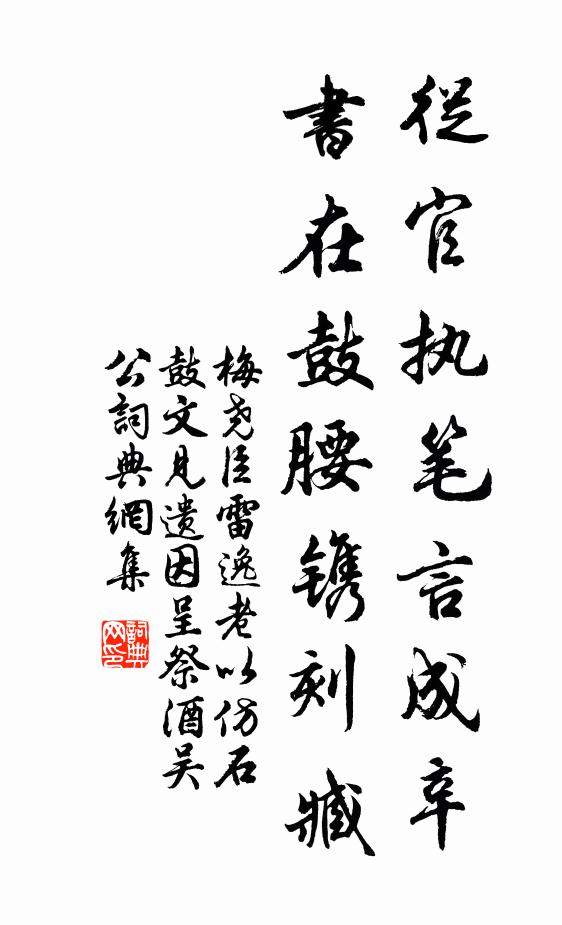 從官执笔言成辛
書在鼓腰镌刻臧
梅尧臣雷逸老以仿石
鼓文见遗因呈祭酒吴
公詞典網集
詞典
网印